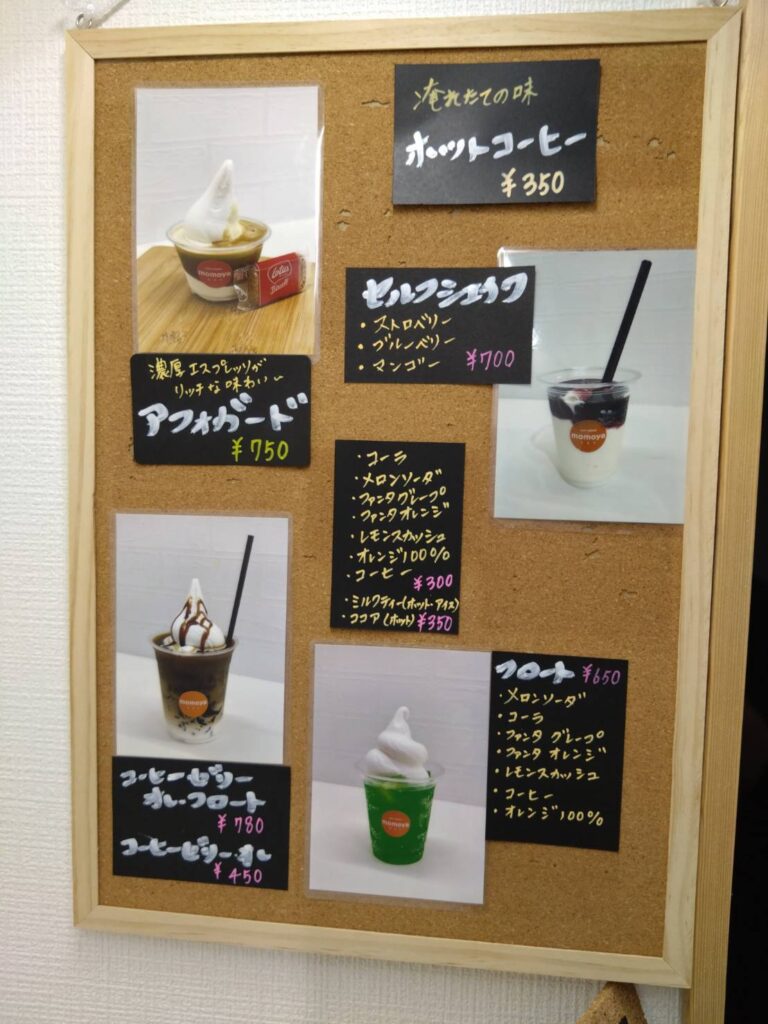 淹れたての味
ホットコーヒー
¥350
momoya
Lotus
Biscoff
濃厚エスプレッソが
リッチな味わい~
アフォガード
¥750
セルフシェイク
・ストロベリー
・ブルーベリー
・マンゴー ¥700
momoya
・コーラ
・メロンソーダ
・ファンタグレープ
・ファンタオレンジ
・レモンスカッシュ
・オレンジ100%
・コーヒー
¥300
・ミルクティー(ホット・アイス)
・ココア(ホット) ¥350
momoya
コーヒーゼリー
オレ・フロート
¥780
コーヒーゼリー・オレ
¥450
momoya
フロート ¥650
・メロンソーダ
・コーラ
・ファンタ グレープ
・ファンタ オレンジ
・レモンスカッシュ
・コーヒー
・オレンジ100%